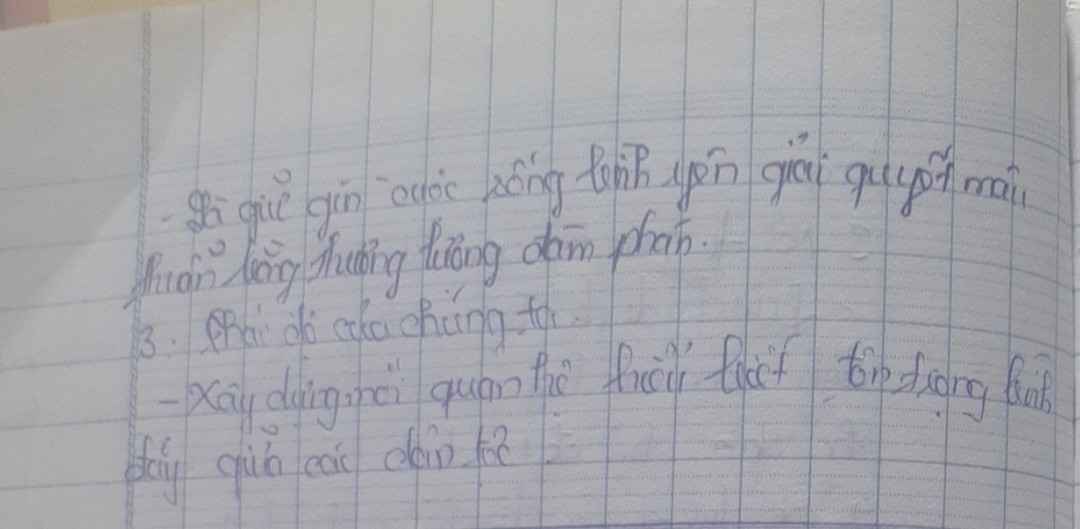 - giữ gìn cuộc sống bình yên giải quyết mâu
thuẫn bằng thương lượng đàm phán.
3. Thái độ của chúng ta.
- Xây dựng mối quan hệ tôn trọng bình
giữa các dân tộ